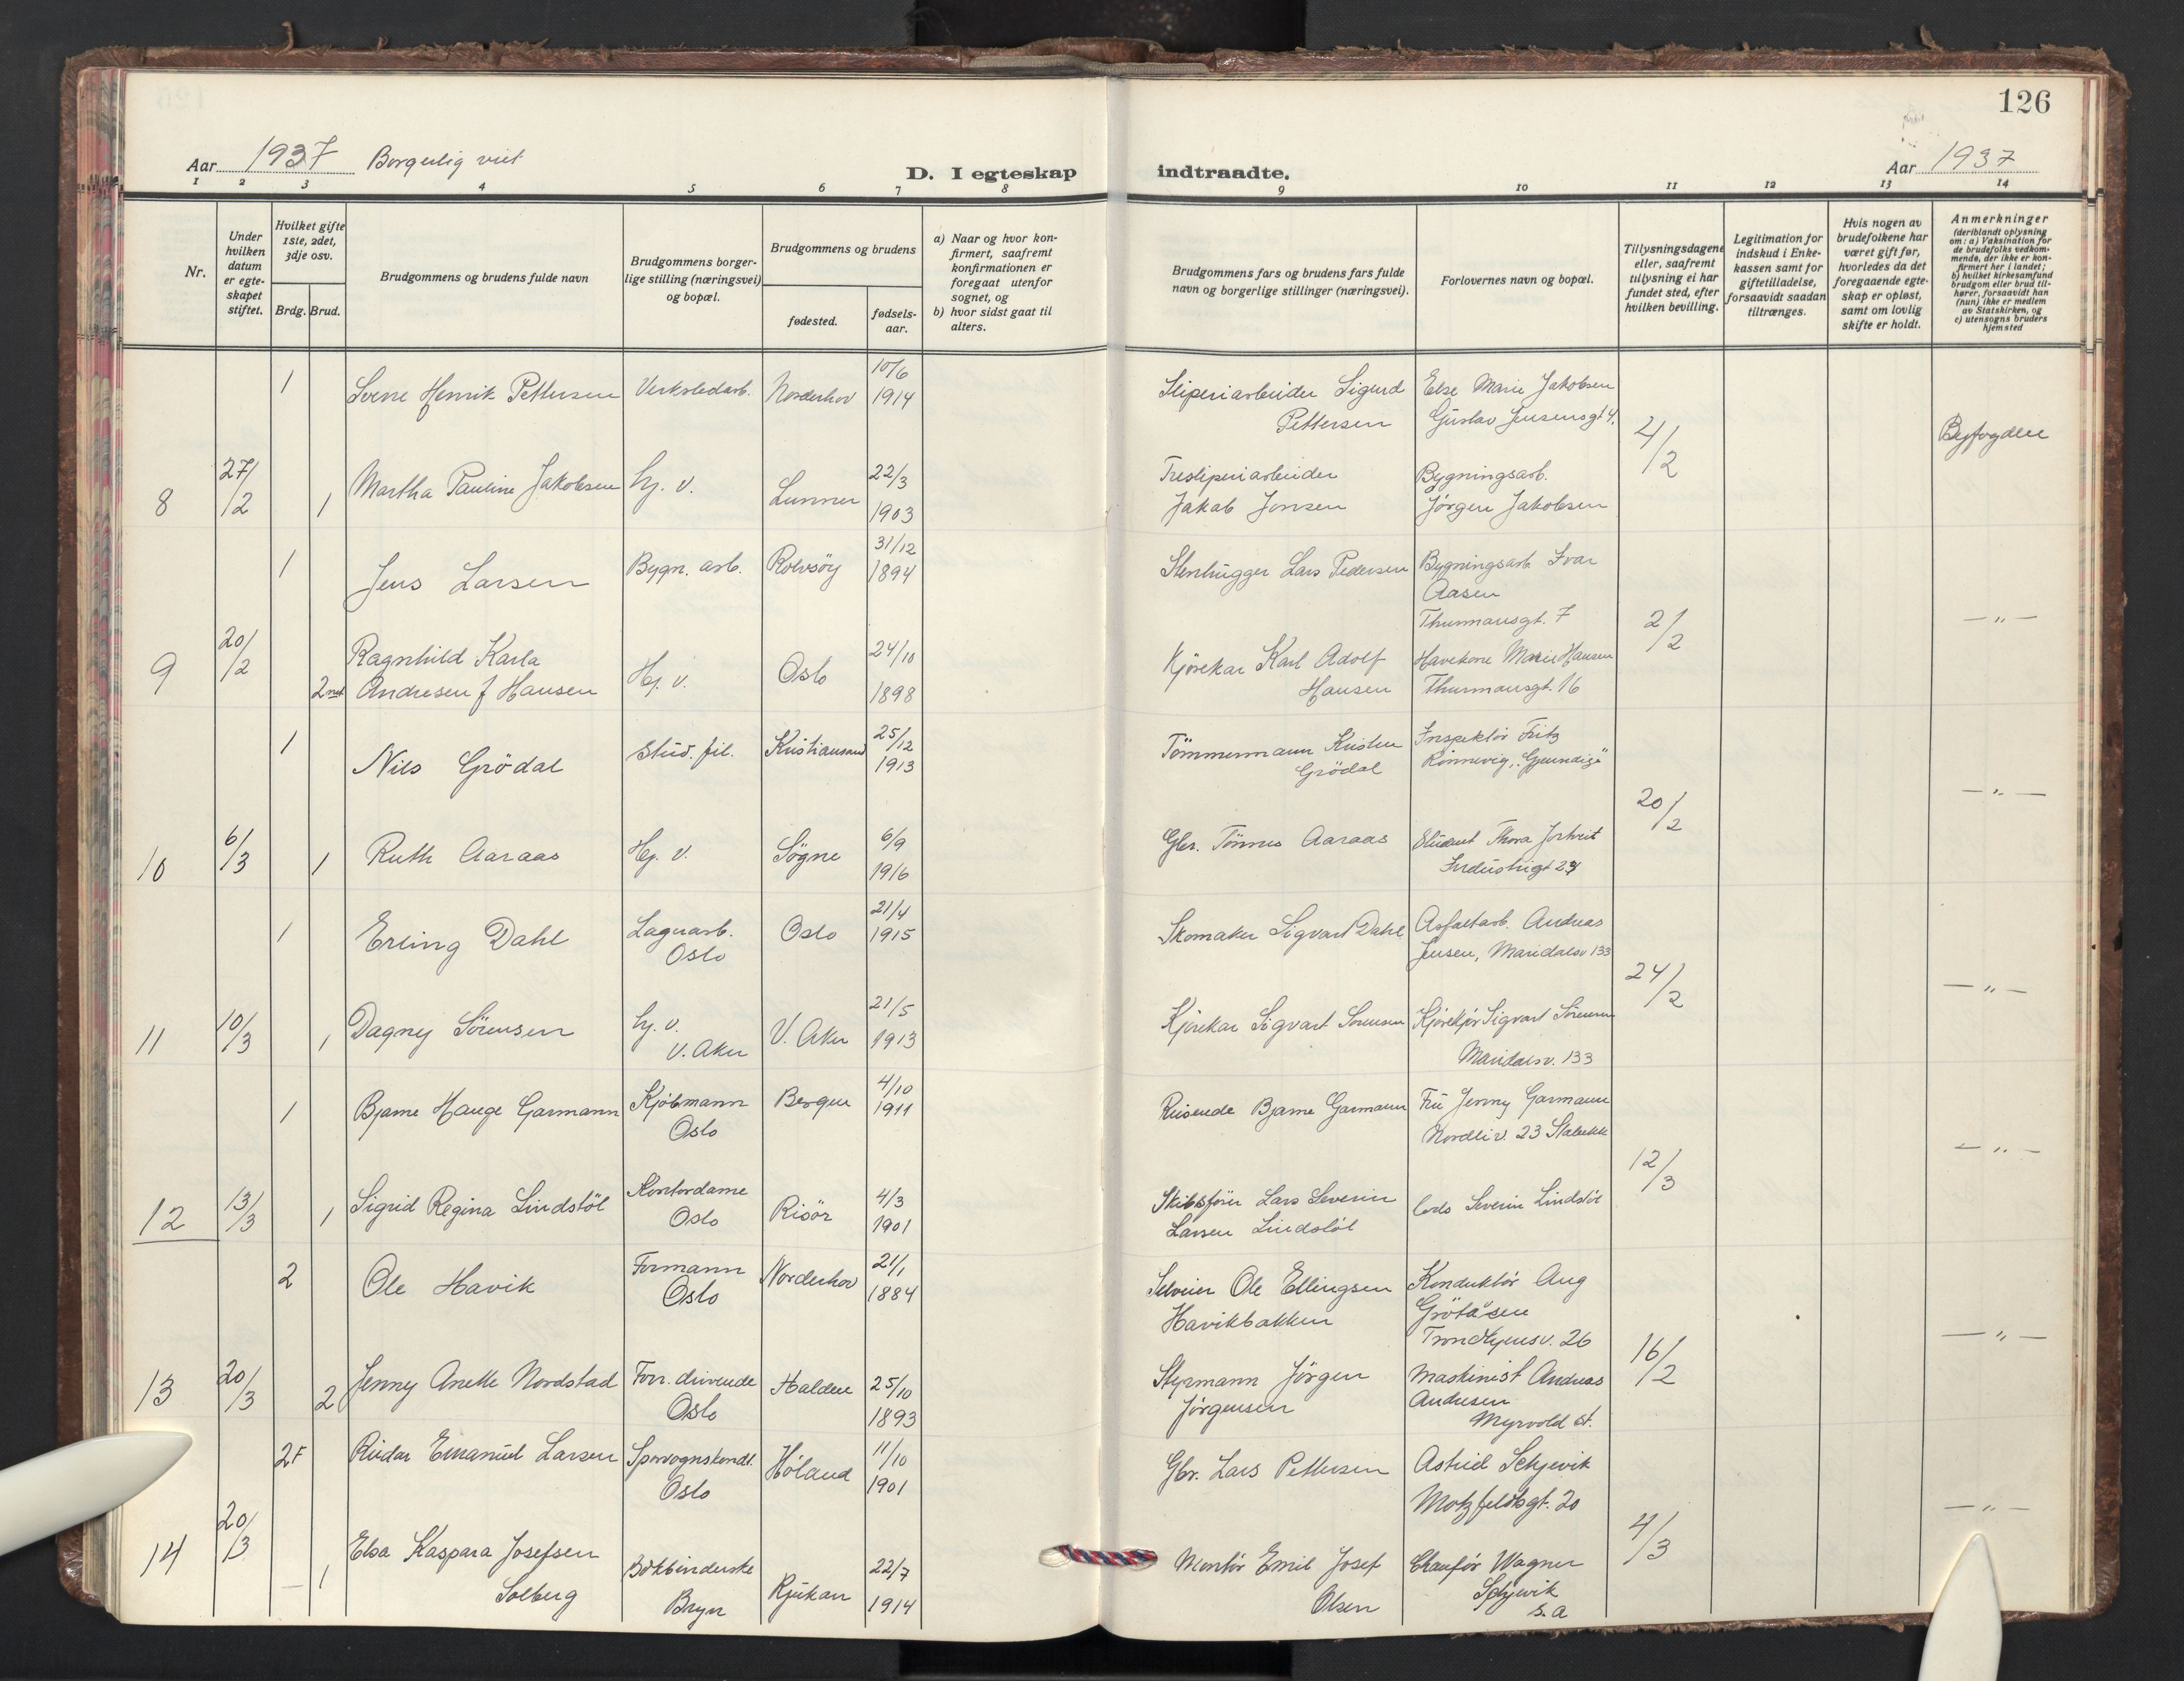 126
Aar 1937 Borgerlig viet
D. I egteskap
indtraadte.
Aar 1937
1 2 3 4 5 6 7 8 9 10 11 12 13 14
Nr.
Under hvilken datum er egteskapet stiftet.
Hvilket gifte 1ste, 2det, 3dje osv.
Brdg. Brud.
Brudgommens og brudens fulde navn
Brudgommens borgerlige stilling (næringsvei) og bopæl.
Brudgommens og brudens
fødested.
fødselsaar.
a) Naar og hvor konfirmert, saafremt konfirmationen er foregaat utenfor sognet, og
b) hvor sidst gaat til alters.
Brudgommens fars og brudens fars fulde navn og borgerlige stillinger (næringsvei).
Forlovernes navn og bopæl.
Tillysningsdagene eller, saafremt tillysning ei har fundet sted, efter hvilken bevilling.
Legitimation for indskud i Enkekassen samt for giftetilladelse, forsaavidt saadan tiltrænges.
Hvis nogen av brudefolkene har været gift før, hvorledes da det foregaaende egteskap er opløst, samt om lovlig skifte er holdt.
Anmerkninger (deriblandt oplysning om: a) Vaksination for de brudefolks vedkommende, der ikke er konfirmert her i landet; b) hvilket kirkesamfund brudgom eller brud tilhører, forsaavidt han (hun) ikke er medlem av Statskirken, og c) utensogns bruders hjemsted
1 Sverre Henrik Pettersen Verkstedarb. Norderhov 10/6 1914
Sliperiarbeider Sigurd Pettersen
Else Marie Jakobsen
Gustav Jensensgt 4.
8 27/2 1 Martha Pauline Jakobsen Hj. v. Lunner 22/3 1903
Tresliperiarbeider
Jakob Jonsen
Bygningsarb.
Jørgen Jakobsen
4/2
Byfogden
1 Jens Larsen Bygn. arb. Rolvsöy 31/12 1894
Stenhugger Lars Pedersen
Bygningsarb Ivar
Aasen
Thurmansgt. 7
9 20/2 2net Ragnhild Karla
Andresen f Hansen Hj. v. Oslo 24/10 1898
Kjörekar Karl Adolf
Hansen
Havekone Marie Hansen
Thurmansgt. 16
2/2
— " —
1 Nils Grödal Stud. fil. Kristiansand 25/12 1913
Tömmermann Kristen
Grödal
Inspektör Fritz
Rönnevig,
10 6/3 1 Ruth Aaraas Hj. v. Søgne 6/9 1916
Gbr. Tönnes Aaraas
Student Thora
Industrigt
20/2
— " —
1 Erling Dahl Lagerarb.
Oslo Oslo 21/4 1915
Skomaker Sigvart Dahl
Asfaltarb. Andreas
Jensen, Maridalsv 133
11 10/3 1 Dagny Sörensen Hj. v.
V. Aker V. Aker 21/5 1913
Kjörekar Sigvart Sörensen
Kjörekjör Sigvart Sörensen
Maridalsv. 133
24/2
— " —
1 Bjarne Hauge Garmann Kjöbmann
Oslo Bergen 4/10 1911
Reisende Bjarne Garmann
Fru Jenny Garmann
Nordliv. 23 Stabekk
12 13/3 1 Sigrid Regina Lindstöl Kontordame
Oslo Risör 4/3 1901
Skibsförer Lars Severin
Larsen Lindstöl
Lars Severin Lindstöl
12/3
— " —
2 Ole Havik Formann
Oslo Norderhov 21/1 1884
Selveier Ole Ellingsen
Havikbakken
Konduktör Aug
Grötåsen
Trondhjemsv. 26
13 20/3 2 Jenny Anette Nordstad Forr. drivende
Oslo Halden 25/10 1893
Styrmann Jörgen
Jörgensen
Maskinist Andreas
Andresen
Myrvold st.
16/2
— " —
2F Reidar Emanuel Larsen Sporvognskondt.
Oslo Höland 11/10 1901
Gbr. Lars Pettersen
Astrid Schjevik
Motzfeldtsgt. 20
14 20/3 1 Elsa Kaspara Josefsen
Solberg Bokbinderske
Bryn Rjukan 22/7 1914
Montör Emil Josef
Olsen
Chauför Wagner
Schjevik
S. a
4/3
— " —